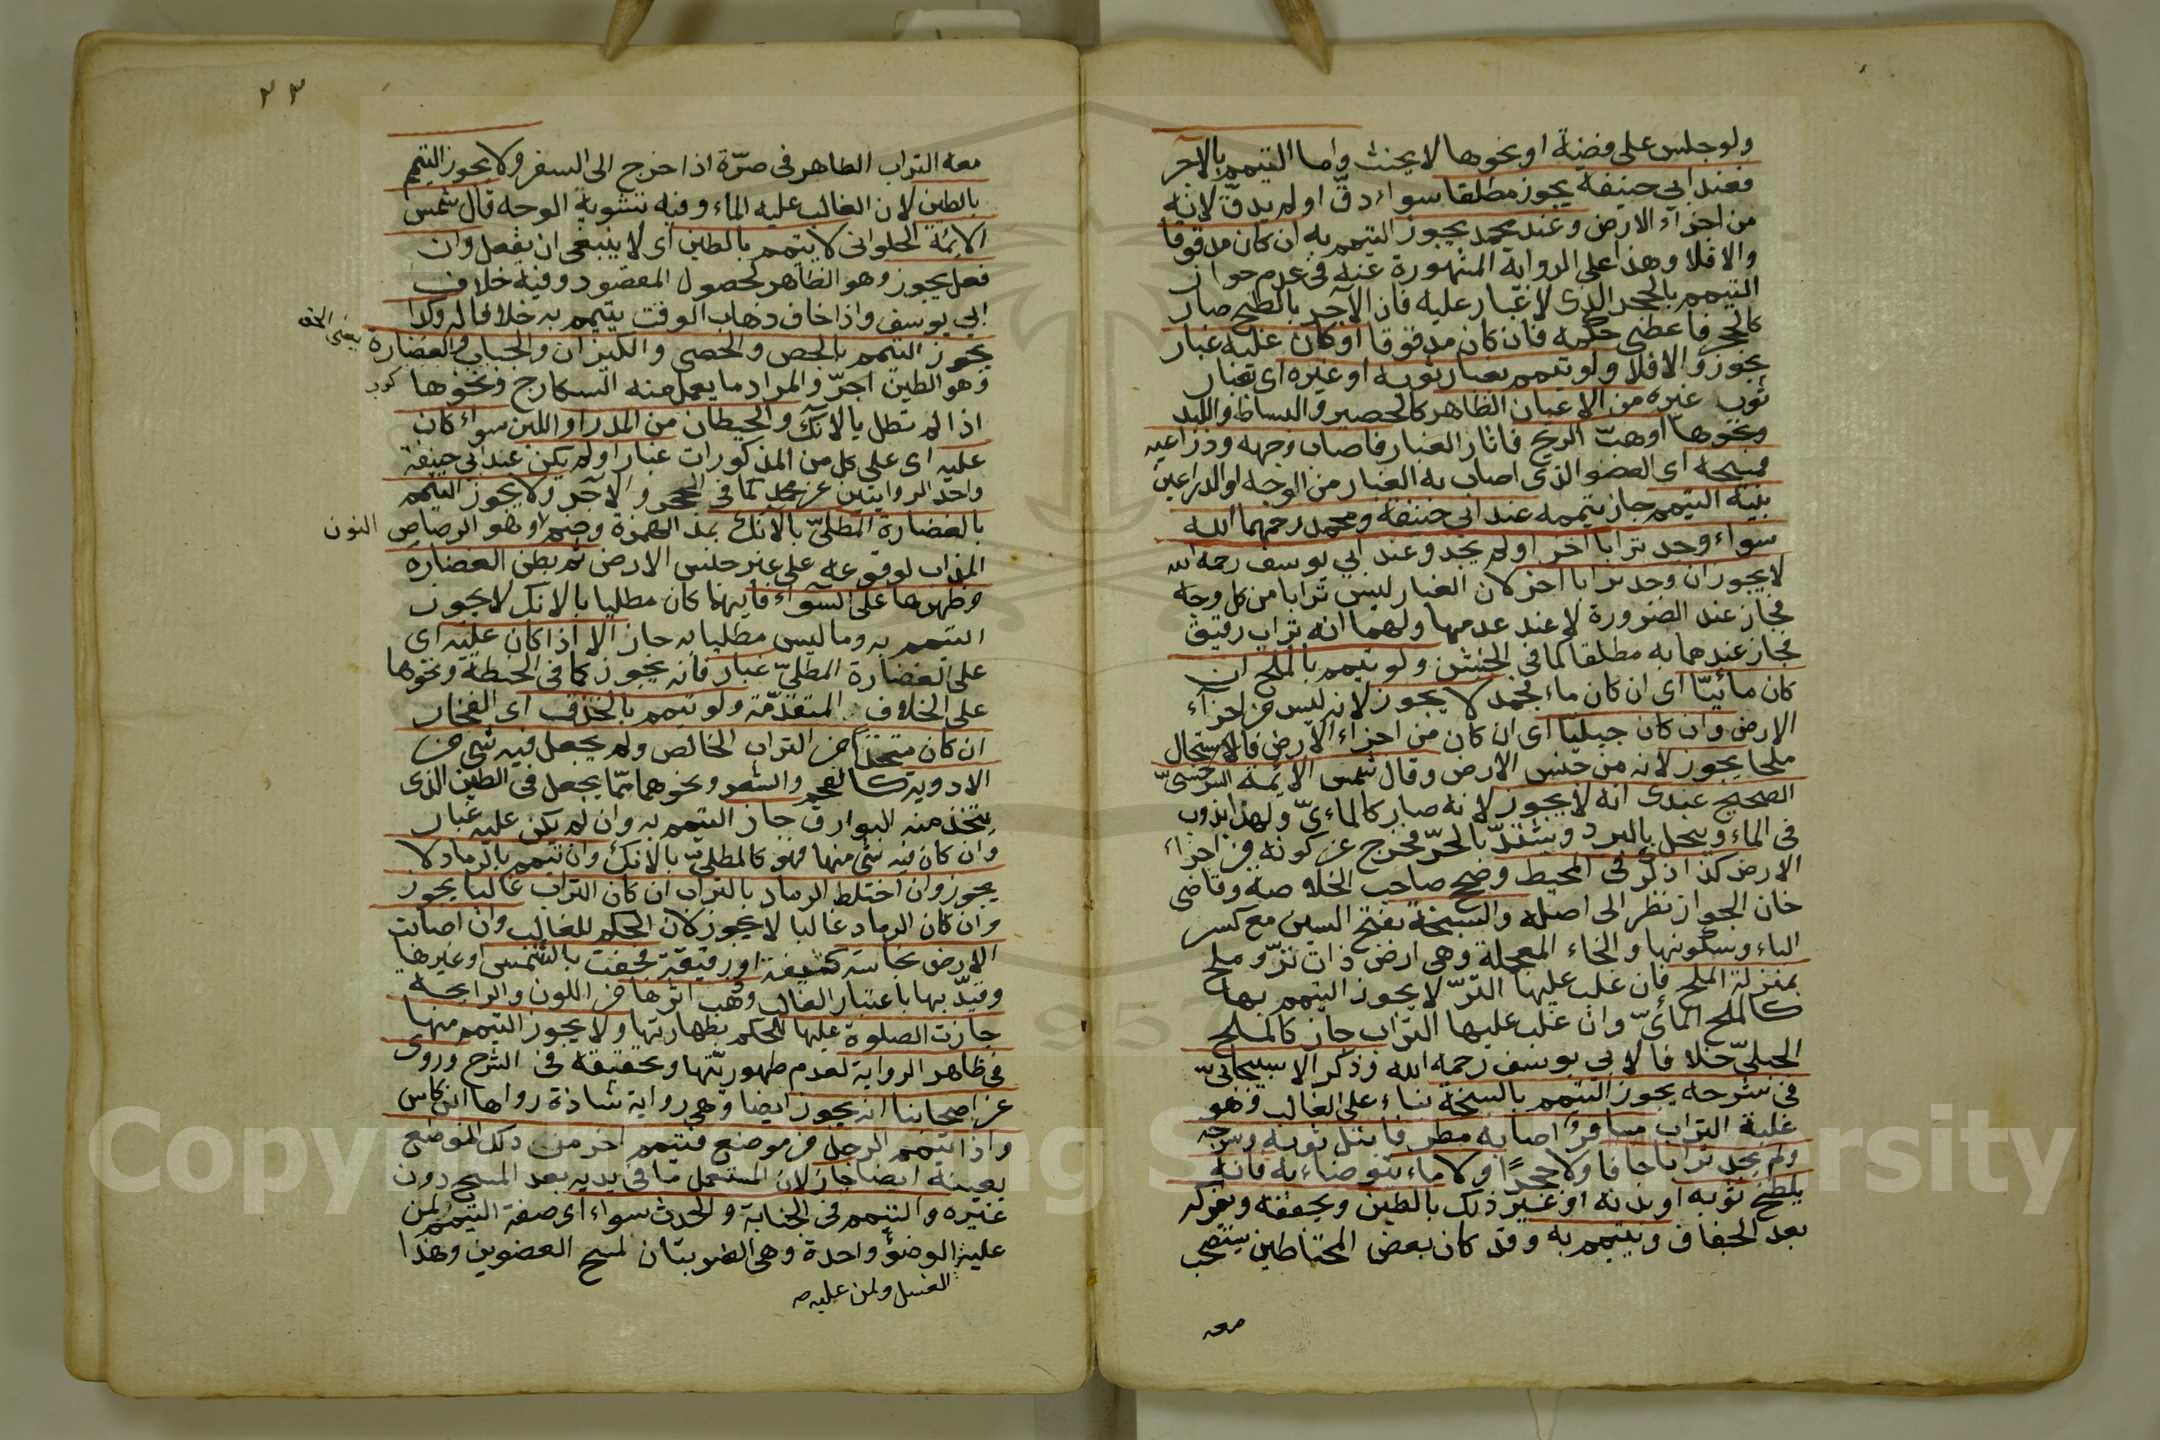 ولو جلس على فضة او نحوها لا يحنث واما التيمم بالآجر
فعند ابي حنيفة يجوز مطلقا سواء دقّ او لم يدقّ لانه
من اجزاء الارض وعند محمد يجوز التيمم به ان كان مدقوقا
والا فلا وهذا على الرواية المشهورة عنه فى عدم جواز
التيمم بالحجر الذى لا غبار عليه فان الآجر بالطبخ صار
كالحجر فاعطى حكمه فان كان مدقوقا او كان عليه غبار
يجوز والا فلا ولو تيمم بغبار ثوبه او غيره اى بغبار
ثوب غيره من الاعيان الظاهر كالحصير والبساط واللبد
ونحوها او هبّت الريح فاثار الغبار فاصاب وجهه وذراعيه
فمسحه اى العضو الذى اصاب به الغبار من الوجه او الذراعين
بنية التيمم جاز تيممه عند ابى حنيفة ومحمد رحمهما الله
سواء وجد ترابا اخر او لم يجد وعند ابي يوسف رحمه الله
لا يجوز ان وجد ترابا اخر لان الغبار ليس ترابا من كل وجه
فجاز عند الضرورة لا عند عدمها ولهما انه تراب رقيق
فجاز عندهما به مطلقا كما فى الخشن ولو تيمم بالملح ان
كان مائيّا اى ان كان ماء فجمد لا يجوز لانه ليس من اجزاء
الارض وان كان جبليّا اى ان كان من اجزاء الارض فالاستحال
ملحا يجوز لانه من جنس الارض وقال شمس الايمة السرخسىّ
الصحيح عندى انه لا يجوز لانه صار كالماءىّ ولهذا يذوب
فى الماء وينحل بالبرد ويشتدّ بالحرّ فخرج عن كونه من اجزاء
الارض كذا ذكر فى المحيط وصحح صاحب الخلاصة وقاضى
خان الجواز نظرا الى اصله والسبخة بفتح السين مع كسر
الباء وسكونها والخاء المعجلة وهى ارض ذات نزّ وملح
بمنزلة الملح فان غلب عليها النزّ لا يجوز التيمم بها
كالملح المائىّ وان غلب عليها التراب جاز كالملح
الجبلىّ خلافا لابى يوسف رحمه الله وذكر الاسبيجابىّ
فى شرحه يجوز التيمم بالسبخة بناء على الغالب وهو
غلبة التراب مسافر اصابه مطر فابتل ثوبه وسرجه
ولم يجد ترابا جافا ولا حجرًا ولا ماء يتوضاء به فانه
يلطخ ثوبه او بدنه او غير ذلك بالطين ويجففه ويفركه
بعد الجفاف ويتيمم به وقد كان بعض المحتاطين يستصحب
معه
٢٣
معه التراب الطاهر فى صرّة اذا خرج الى السفر ولا يجوز التيمم
بالطين لان الغالب عليه الماء وفيه تشويه الوجه قال شمس
الايمة الحلوانى لا يتيمم بالطين اى لا ينبغى ان يفعل وان
فعل يجوز وهو الظاهر لحصول المقصود وفيه خلاف
ابى يوسف واذا خاف ذهاب الوقت يتيمم به خلافا له وكذا
يجوز التيمم بالجص والحصى والكيزان والجباب والغضارة
وهو الطين اجرّ والمراد ما يعمل منه السكارج ونحوها
اذا لم تطل بالآنك والحيطان من المدر او اللبن سواء كان
عليه اى على كل من المذكورات غبار او لم يكن عند ابى حنيفة
واحد الروايتين عن محمد كما فى الحجر والآجر ولا يجوز التيمم
بالغضارة المطلىّ بالآنك بمد الهمزة وضم وهو الرصاص
النون
المذاب لوقوعه على غير جنس الارض ثم بطن الغضارة
وظهرها على السواء فايهما كان مطليا بالانك لا يجوز
التيمم به وما ليس مطليا به جاز الا اذا كان عليه اى
على الغضارة المطلىّ غبار فانه يجوز كما فى الحنطة ونحوها
على الخلاف المتقدّمة ولو تيمم بالخذف اى الفخار
ان كان متخذا من التراب الخالص ولم يجعل فيه شئ من
الادوية كالفحم والشعر ونحوهما ممّا يجعل فى الطين الذى
يتخذ منه البوارق جاز التيمم به وان لم يكن عليه غبار
وان كان فيه شئ منها فهو كالمطلىّ بالآنك وان تيمم بالرماد لا
يجوز وان اختلط الرماد بالتراب ان كان التراب غالبا يجوز
وان كان الرماد غالبا لا يجوز لان الحكم للغالب وان اصابت
الارض نجاسة كثيفة او رقيقة فجفت بالشمس او غيرها
وقيّد بها باعتبار الغالب وذهب اثرها من اللون والرايحة
جازت الصلوة عليها للحكم بطهارتها ولا يجوز التيمم منها
فى ظاهر الرواية لعدم طهوريّتها وتحقيقه فى الشرح وروى
عن اصحابنا انه يجوز ايضا وهى رواية شاذة رواها ابن كاس
واذا تيمم الرجل من موضع فتيمم اخر من ذلك الموضع
بعينه ايضا جاز لان المستعمل ما فى يديه بعد المسح دون
غيره والتيمم فى الجنابة والحدث سواء اى صفة التيمم لمن
عليه الوضؤ واحدة وهى الضربتان لمسح العضوين وهذا
الغسل ولمن عليه صح
Copyright © King Saud University
1957